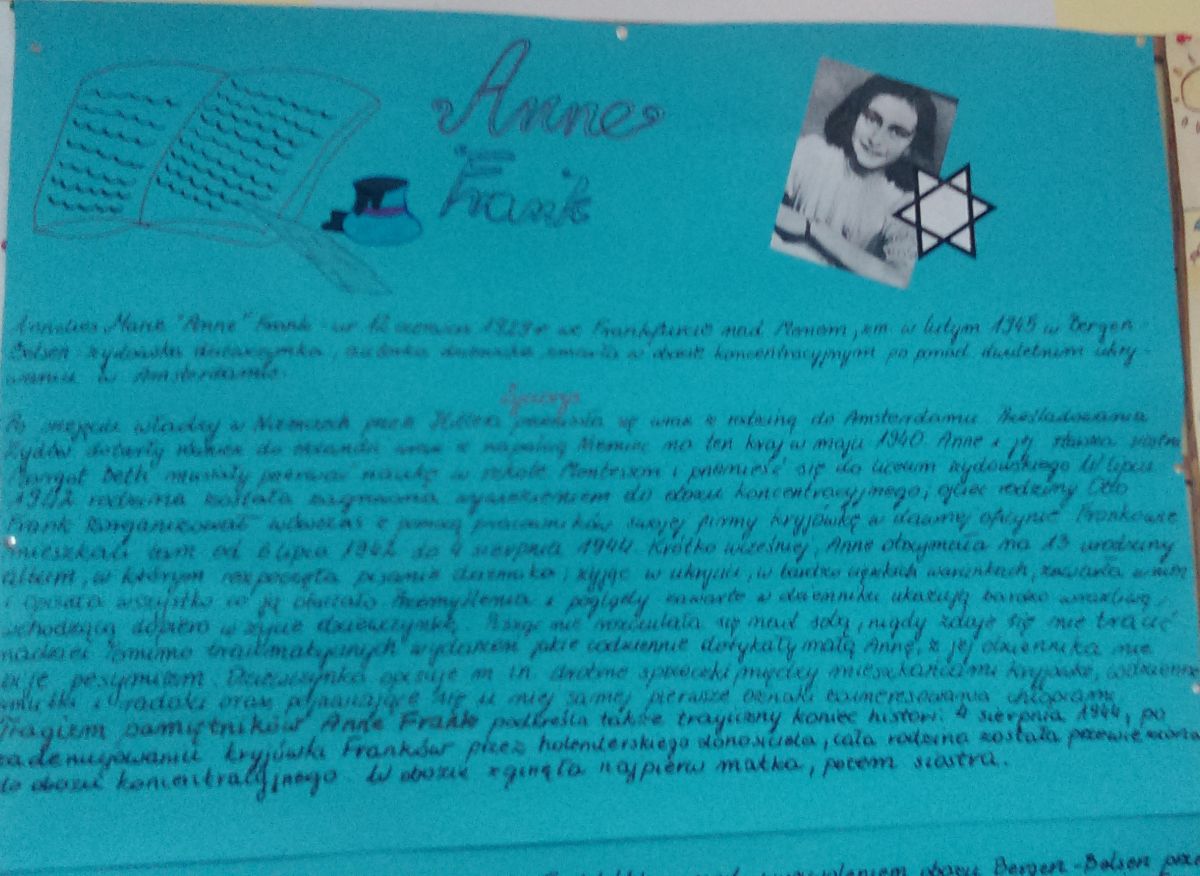 Anne
Frank
Annelies Marie "Anne" Frank ur. 12 czerwca 1929 r we Frankfurcie nad Menem, zm. w lutym 1945 w Bergen-
Belsen żydowska dziewczynka, autorka dziennika zmarła w obozie koncentracyjnym po ponad dwuletnim ukry-
waniu w Amsterdamie.
Życiorys
Po przejęciu władzy w Niemczech przez Hitlera przeniosła się wraz z rodziną do Amsterdamu. Prześladowania
Żydów dotarły również do wraz z napaścią Niemiec na ten kraj w maju 1940. Anne i jej starsza siostra
Margot Betti musiały przerwać naukę w szkole Montessori i przenieść się do liceum żydowskiego W lipcu
1942 rodzina została zagrożona wywiezieniem do obozu koncentracyjnego, ojciec rodziny Otto
Frank zorganizował wówczas z pomocą pracowników swojej firmy kryjówkę w dawnej oficynie. Frankowie
mieszkali tam od 6 lipca 1942 do 4 sierpnia 1944. Krótko wcześniej, Anne otrzymała na 13 urodziny
album, w którym rozpoczęła pisanie dziennika; żyjąc w ukryciu, w bardzo ciężkich warunkach, zawarła w nim
i opisała wszystko co ją otaczało. Przemyślenia i poglądy zawarte w dzienniku ukazują bardzo wrażliwą,
wchodzącą dopiero w życie dziewczynkę. nie rozczulała się nad sobą, nigdy zdaje się nie tracić
nadziei. Pomimo traumatycznych wydarzeń jakie codziennie dotykały małą Annę, z jej dziennika nie
bije pesymizm. Dziewczynka opisuje m in. drobne sprzeczki między mieszkańcami kryjówki, codzienne
smutki i radości oraz pojawiające się u niej samej pierwsze oznaki zainteresowania chłopcami.
Tragizm pamiętników Anne Frank podkreśla także tragiczny koniec histori: 4 sierpnia 1944, po
zadenuncjowaniu kryjówki Franków przez holenderskiego donosiciela, cała rodzina została przewieziona
do obozu koncentracyjnego. W obozie zginęła najpierw matka, potem siostra.
wyzwoleniem obozu Bergen-Belsen przez